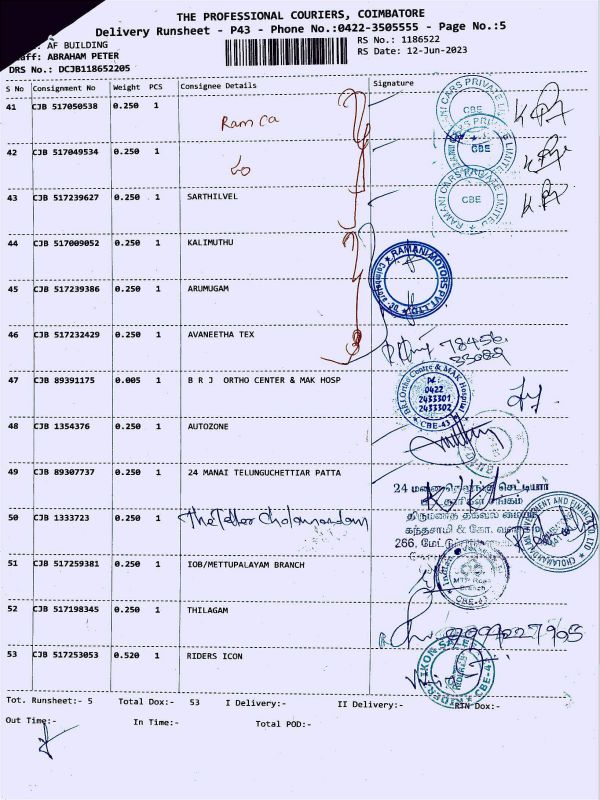 THE PROFESSIONAL COURIERS, COIMBATORE
Delivery Runsheet - P43 - Phone No.:0422-3505555 - Page No.:5
: AF BUILDING
RS No.: 1186522
aff: ABRAHAM PETER
RS Date: 12-Jun-2023
DRS No.: DCJB118652205
S No Consignment No Weight PCS Consignee Details Signature
41 CJB 517050538 0.250 1 Ram Ca
42 CJB 517049534 0.250 1
43 CJB 517239627 0.250 1 SARTHILVEL
44 CJB 517009052 0.250 1 KALIMUTHU
45 CJB 517239386 0.250 1 ARUMUGAM
46 CJB 517232429 0.250 1 AVANEETHA TEX
47 CJB 89391175 0.005 1 B R J ORTHO CENTER & MAK HOSP
48 CJB 1354376 0.250 1 AUTOZONE
49 CJB 89307737 0.250 1 24 MANAI TELUNGUCHETTIAR PATTA
50 CJB 1333723 0.250 1
51 CJB 517259381 0.250 1 IOB/METTUPALAYAM BRANCH
52 CJB 517198345 0.250 1 THILAGAM
53 CJB 517253053 0.520 1 RIDERS ICON
RAMANI CARS PRIVATE LIMITED
CBE
RAMANI CARS PRIVATE LIMITED
CBE
RAMANI CARS PRIVATE LIMITED
CBE
RAMANI MOTORS PVT LTD
78456
33088
BRJ Ortho Centre & MAK Hospital
PH:
0422
2433301
2433302
CBE-43
24 மனை
சங்கம்
திருமண தகவல் மையம்
கந்தசாமி & கோ.
266,
CHOLAMANDALAM INVESTMENT AND FINANCE CO. LTD
Branch
CBE-43
9994227905
Tot. Runsheet:- 5 Total Dox:- 53 I Delivery:- II Delivery:- RTN Dox:-
Out Time:- In Time:- Total POD:-